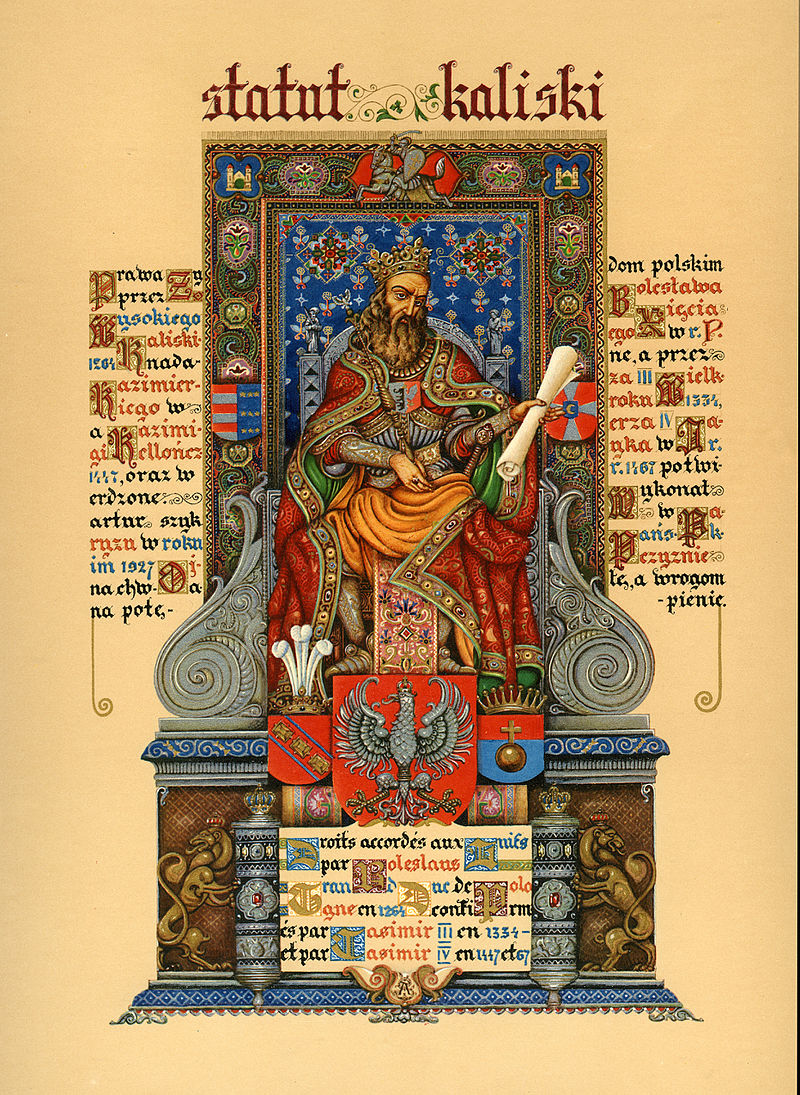 statut kaliski
Prawa Ży dom polskim
przez Bo lesława
Wysokiego Xięcia
Kaliski ego w r. P.
1264 nada- ne, a przez
Kazimier- za III Wielk
iego w roku 1334,
a Kazimi erza IV Ja
giellończ yka w r.
1447, oraz w r. 1467 potwi
erdzone. Wykonał
artur szyk w Pa
ryżu w roku Pańsk
im 1927 Oj czyźnie
na chwa łę, a wrogom
na potę,- -pienie.
Droits accordés aux Juifs
par Boleslaus
Gran d Duc de Polo
gne en 1264 confirm
és par Casimir III en 1334-
et par Casimir IV en 1447 et 67